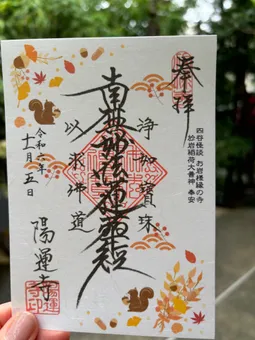 奉拝
四谷怪談 お岩様縁の寺
於岩稲荷大善神 奉安
浄如寶珠
南無妙法蓮華経
以求佛道
令和六年
十二月五日
陽運寺